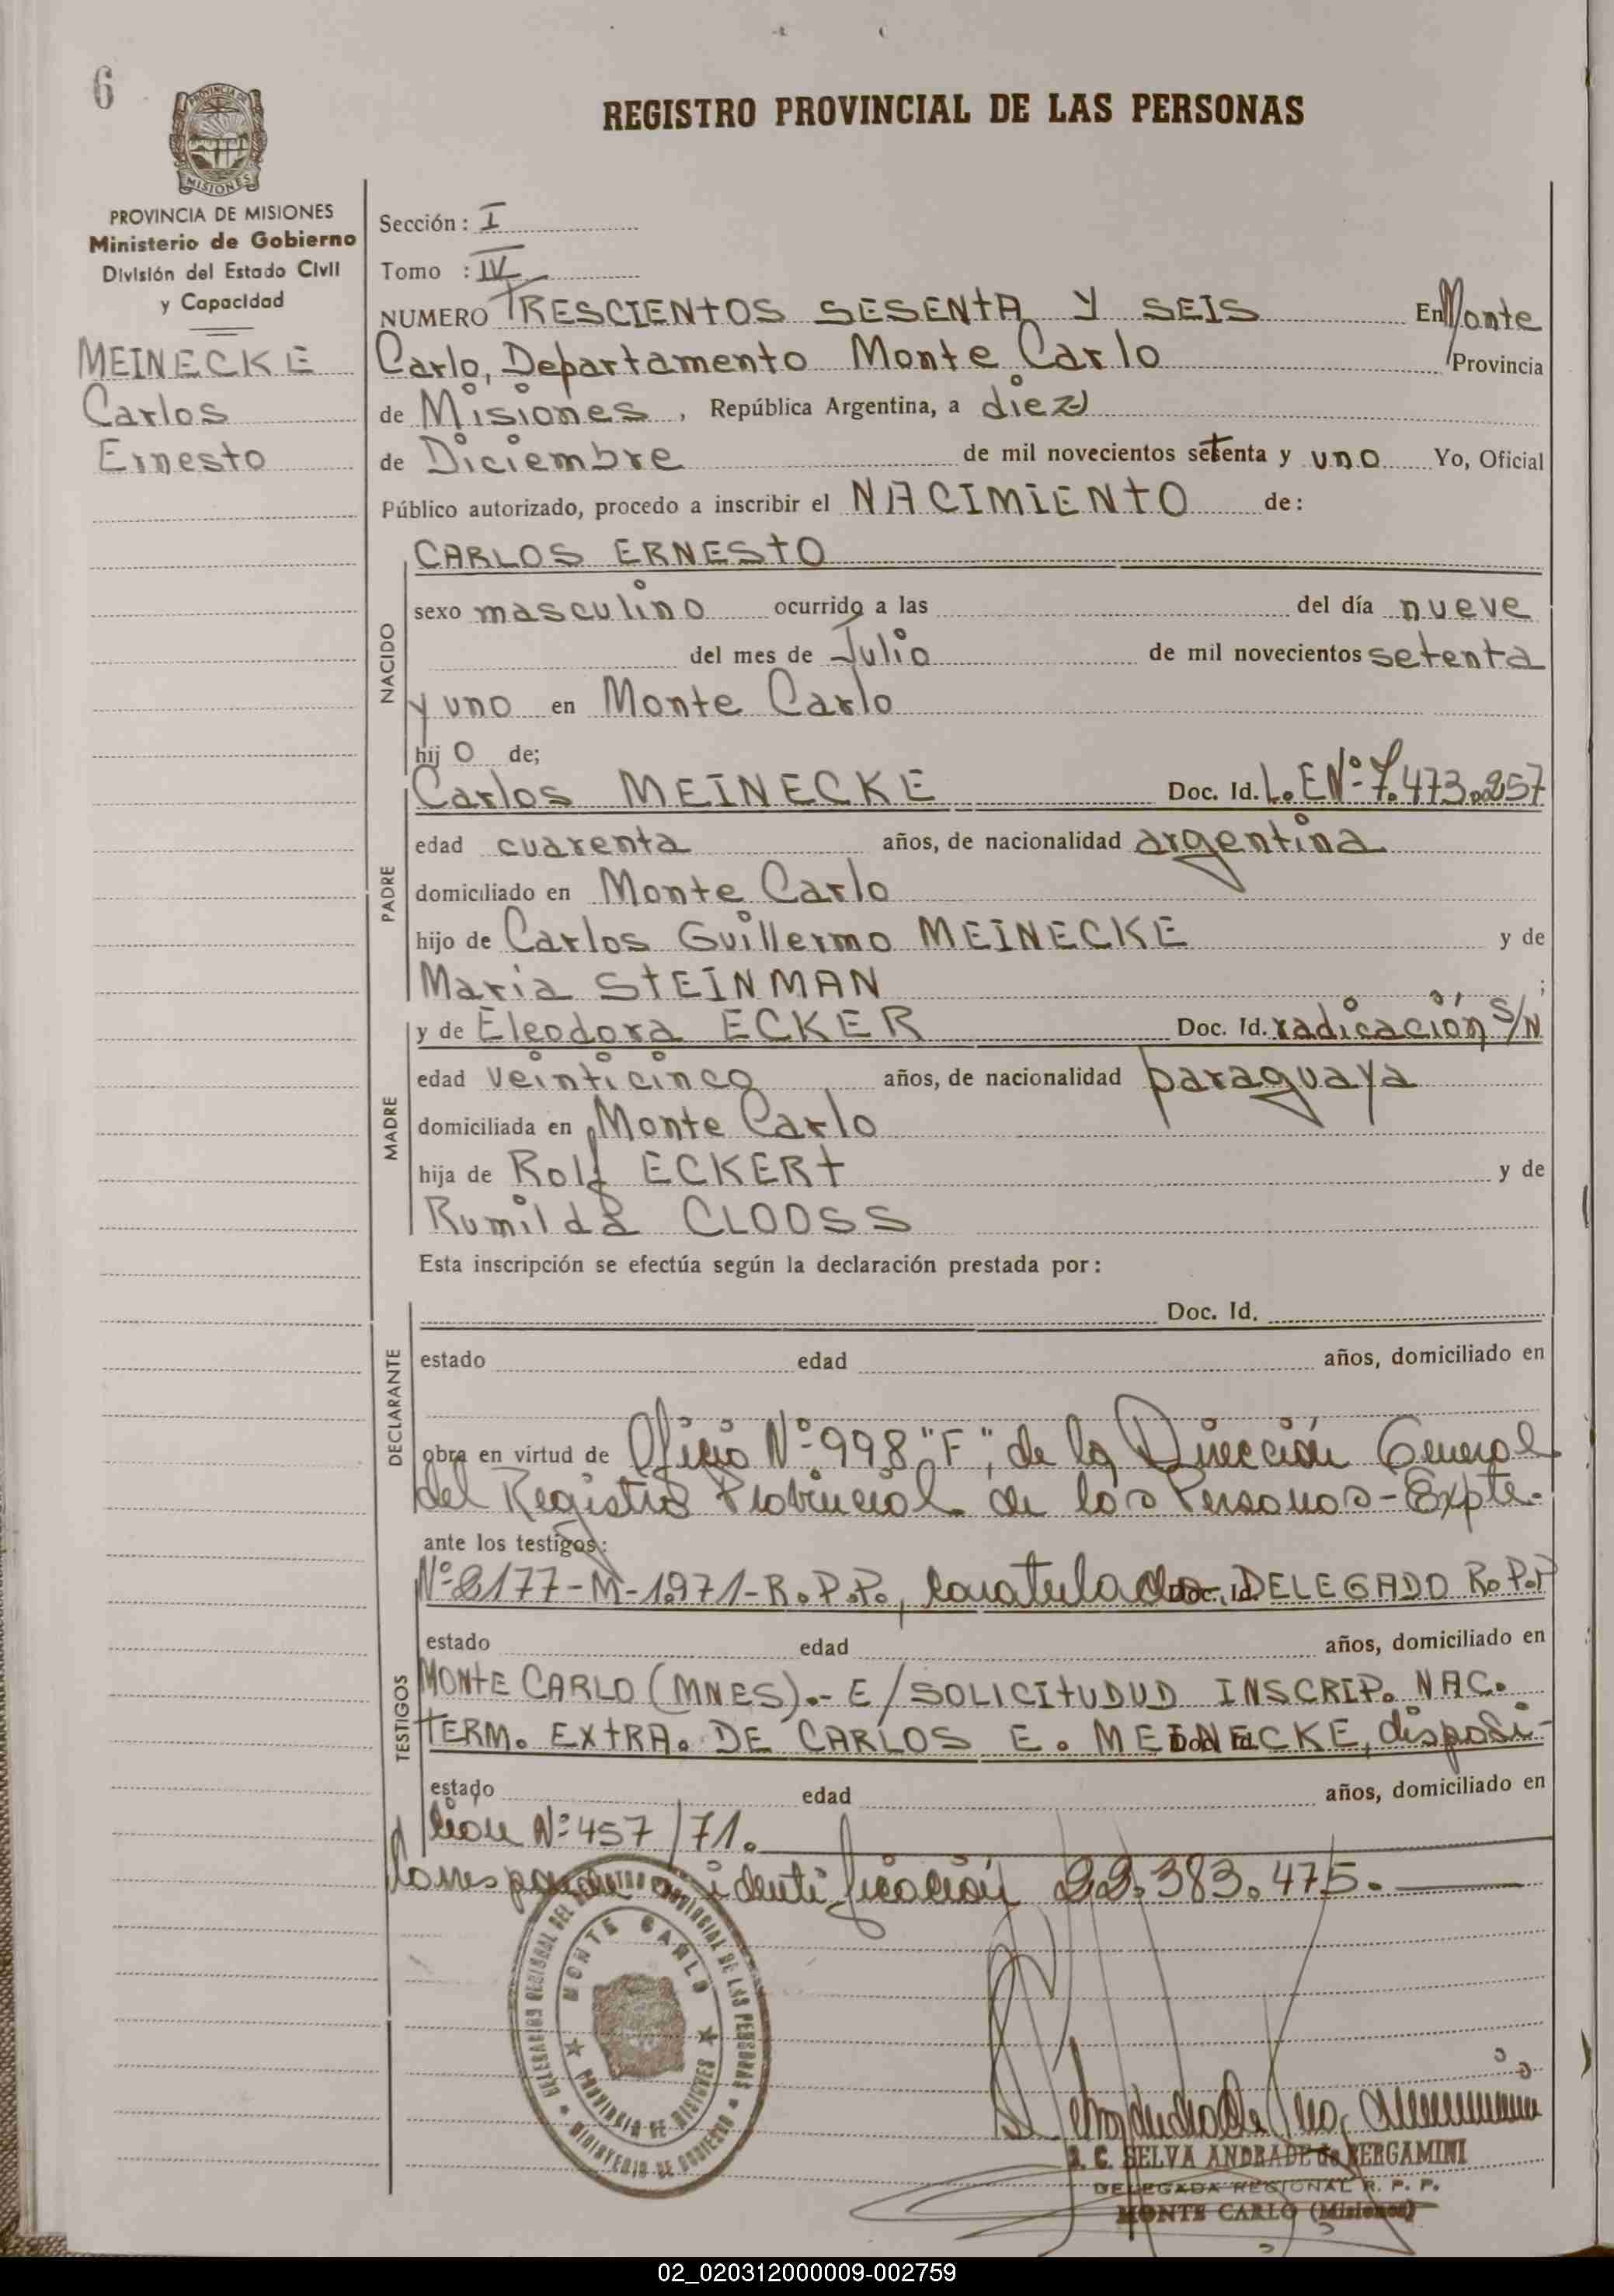 6
PROVINCIA DE
MISIONES
REGISTRO PROVINCIAL DE LAS PERSONAS
PROVINCIA DE MISIONES
Ministerio de Gobierno
División del Estado Civil
y Capacidad
MEINECKE
Carlos
Ernesto
Sección : I
Tomo : IV
NUMERO TRESCIENTOS SESENTA Y SEIS En Monte
Carlo, Departamento Monte Carlo Provincia
de Misiones, República Argentina, a diez
de Diciembre de mil novecientos setenta y uno Yo, Oficial
Público autorizado, procedo a inscribir el NACIMIENTO de:
NACIDO
CARLOS ERNESTO
sexo masculino ocurrido a las del día nueve
del mes de Julio de mil novecientos setenta
y uno en Monte Carlo
hij o de;
PADRE
Carlos MEINECKE Doc. Id. L.E Nº 7.473.257
edad cuarenta años, de nacionalidad argentina
domiciliado en Monte Carlo
hijo de Carlos Guillermo MEINECKE y de
Maria STEINMAN ;
MADRE
y de Eleodora ECKER Doc. Id. radicación S/N
edad veinticinco años, de nacionalidad paraguaya
domiciliada en Monte Carlo
hija de Rolf ECKERT y de
Rumilda CLOOSS
Esta inscripción se efectúa según la declaración prestada por :
DECLARANTE
Doc. Id.
estado edad años, domiciliado en
obra en virtud de Oficio Nº 998 "F", de la Dirección General
del Registro Provincial de las Personas - Expte.
ante los testigos:
TESTIGOS
Nº 8177-M-1971-R.P.P., caratulado: Doc. Id. DELEGADO R.P.P
estado edad años, domiciliado en
MONTE CARLO (MNES).- E/SOLICITUDUD INSCRIP. NAC.
TERM. EXTRA. DE CARLOS E. MEINECKE, disposi-
Doc. Id.
estado edad años, domiciliado en
ción Nº 457/71.
Corresponde a identificación 22.383.475.
REGISTRO PROVINCIAL DE LAS PERSONAS
MONTE CARLO
PROVINCIA DE MISIONES
MINISTERIO DE GOBIERNO
S. C. SELVA ANDRADE de BERGAMINI
DELEGADA REGIONAL R. P. P.
MONTE CARLO (Misiones)
02_020312000009-002759